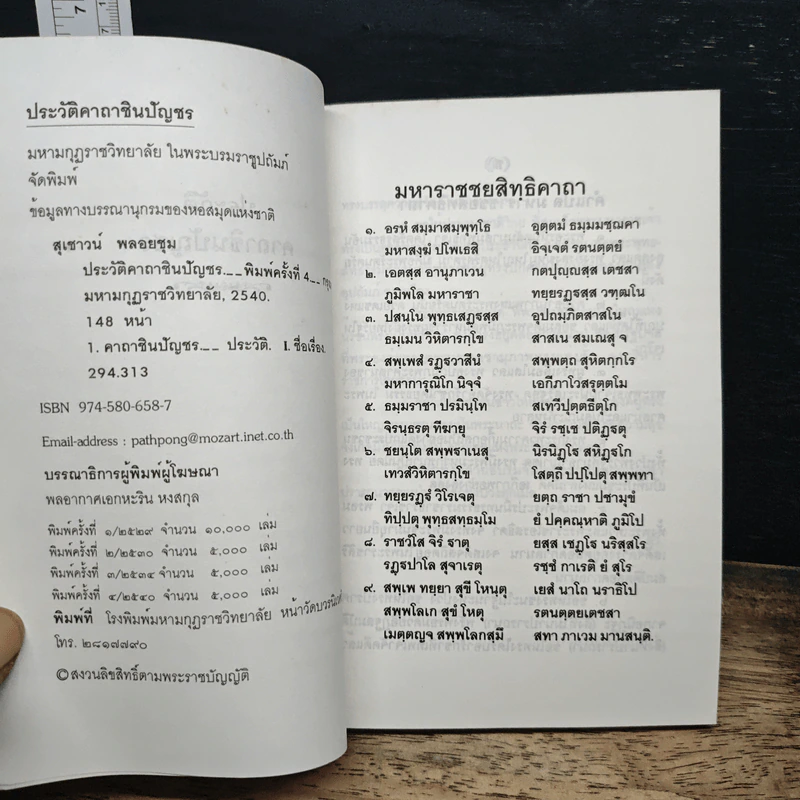 ประวัติคาถาชินปัญชร
มหามกุฏราชวิทยาลัย ในพระบรมราชูปถัมภ์
จัดพิมพ์
ข้อมูลทางบรรณานุกรมของหอสมุดแห่งชาติ
สุเชาวน์ พลอยชุม
ประวัติคาถาชินปัญชร.__พิมพ์ครั้งที่ 4.__
มหามกุฏราชวิทยาลัย, 2540.
148 หน้า
1. คาถาชินปัญชร.__ ประวัติ. I. ชื่อเรื่อง.
294.313
ISBN 974-580-658-7
Email-address : pathpong@mozart.inet.co.th
บรรณาธิการผู้พิมพ์ผู้โฆษณา
พลอากาศเอกหะริน หงสกุล
พิมพ์ครั้งที่ ๑/๒๕๒๙ จำนวน ๑๐,๐๐๐ เล่ม
พิมพ์ครั้งที่ ๒/๒๕๓๐ จำนวน ๕,๐๐๐ เล่ม
พิมพ์ครั้งที่ ๓/๒๕๓๔ จำนวน ๕,๐๐๐ เล่ม
พิมพ์ครั้งที่ ๔/๒๕๔๐ จำนวน ๕,๐๐๐ เล่ม
พิมพ์ที่ โรงพิมพ์มหามกุฏราชวิทยาลัย หน้าวัดบวรนิเวศ
โทร. ๒๘๑๗๗๙๐
© สงวนลิขสิทธิ์ตามพระราชบัญญัติ
มหาราชชยสิทฺธิคาถา
๑. อรหํ สมฺมาสมฺพุทฺโธ อุตฺตมํ ธมฺมมชฺฌคา
มหาสงฺฆํ ปโพเธสิ อิจฺเจตํ รตนตฺตยํ
๒. เอตสฺส อานุภาเวน กตปุญฺญสฺส เตชสา
ภูมิพโล มหาราชา ทยฺยรฏฺฐสฺส วฑฺฒโน
๓. ปสนฺโน พุทฺธเสฏฺฐสฺส อุปถมฺภิตสาสโน
ธมฺเมน วิหิตารกฺโข สาสเน สมเณสุ จ
๔. สพฺเพสํ รฏฺฐวาสีนํ สพฺพตฺถ สุหิตกฺกโร
มหาการุณิโก นิจฺจํ เอกีภาโวสรุตฺตโม
๕. ธมฺมราชา ปรมินฺโท สเทวีปุตฺตธีตุโก
จิรนฺธรตุ ทีฆายุ จิรํ รชฺเช ปติฏฺฐตุ
๖. ชยนฺโต สพฺพฐาเนสุ นิรนิฏฺโฐ สหิฏฺฐโก
เทวสํวิหิตารกฺโข โสตฺถึ ปปฺโปตุ สพฺพทา
๗. ทยฺยรฏฺฐํ วิโรเจตุ ยตฺถ ราชา ปชามุขํ
ทิปฺปตุ พุทฺธสทฺธมฺโม ยํ ปคฺคณฺหาติ ภูมิโป
๘. ราชวํโส จิรํ ฐาตุ ยสฺส เชฏฺโฐ นริสฺสโร
รฏฺฐปาโล สุจาเรตุ รชฺชํ กาเรติ ยํ สุโร
๙. สพฺเพ ทยฺยา สุขี โหนฺตุ เยสํ นาโถ นราธิโป
สพฺพโลเก สุขํ โหตุ รตนตฺตยเตชสา
เมตฺตญฺจ สพฺพโลกสฺมึ สทา ภาเวม มานสนฺติ.